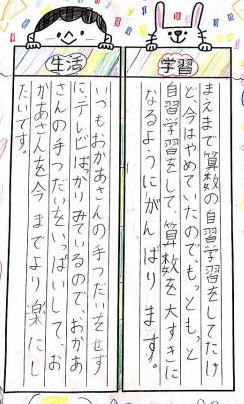 学習
まえまで算数の自習学習をしてたけ
ど、今はやめていたので、もっともっと
自習学習をして、算数を大すきに
なるようにがんばります。
生活
いつもおかあさんの手つだいをせず
にテレビばっかりみているので、おかあ
さんの手つだいをいっぱいして、お
かあさんを今までより楽にし
たいです。